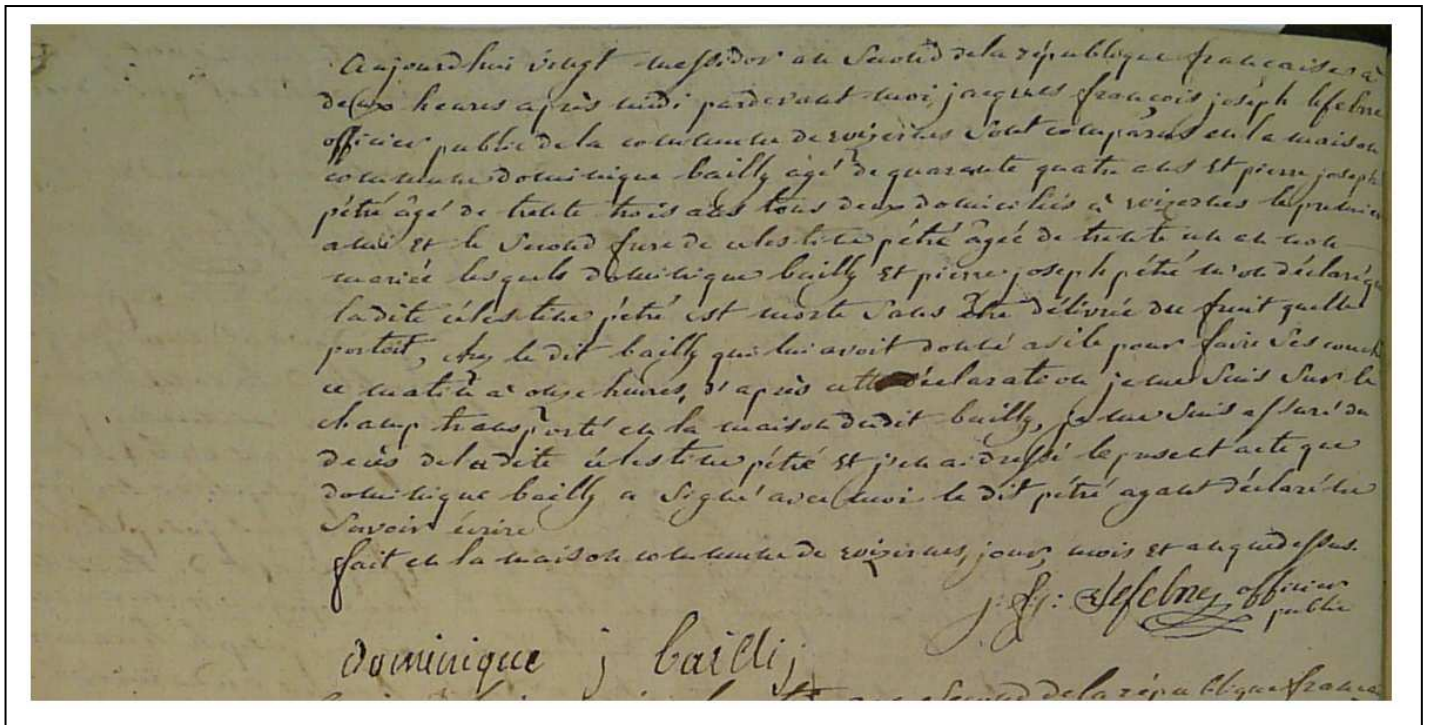 Aujourdhui vingt messidor an second dela république francaises à
deux heures après midi pardevant moi, jacques francois joseph lefebvre
officier public de la commune de wizernes sont comparus en la maison
commune dominique bailly agé de quarante quatre ans et pierre joseph
pétré âgé de trente trois ans tous deux domiciliés à wizernes le premier
ami et le second frere de celestine pétré âgée de trente un an non
mariée lesquels dominique bailly et pierre joseph pétré m'on déclaré que
ladite célestine pétré est morte sans être délivrée du fruit quelle
portoit, chez le dit bailly qui lui avoit donné asile pour faire ses couch
ce matin à onze heures, d'après cette déclaration je me suis sur le
champ transporté en la maison dudit bailly, je me suis assuré du
décès deladite célestine pétré et j'en ai dressé le present acte que
dominique bailly a signé avec moi le dit pétré ayant déclaré ne
savoir écrire
fait en la maison commune de wizernes, jour, mois et an que dessus.
j. fj: Lefebvre officier
public
dominique j bailli j
second dela république francai